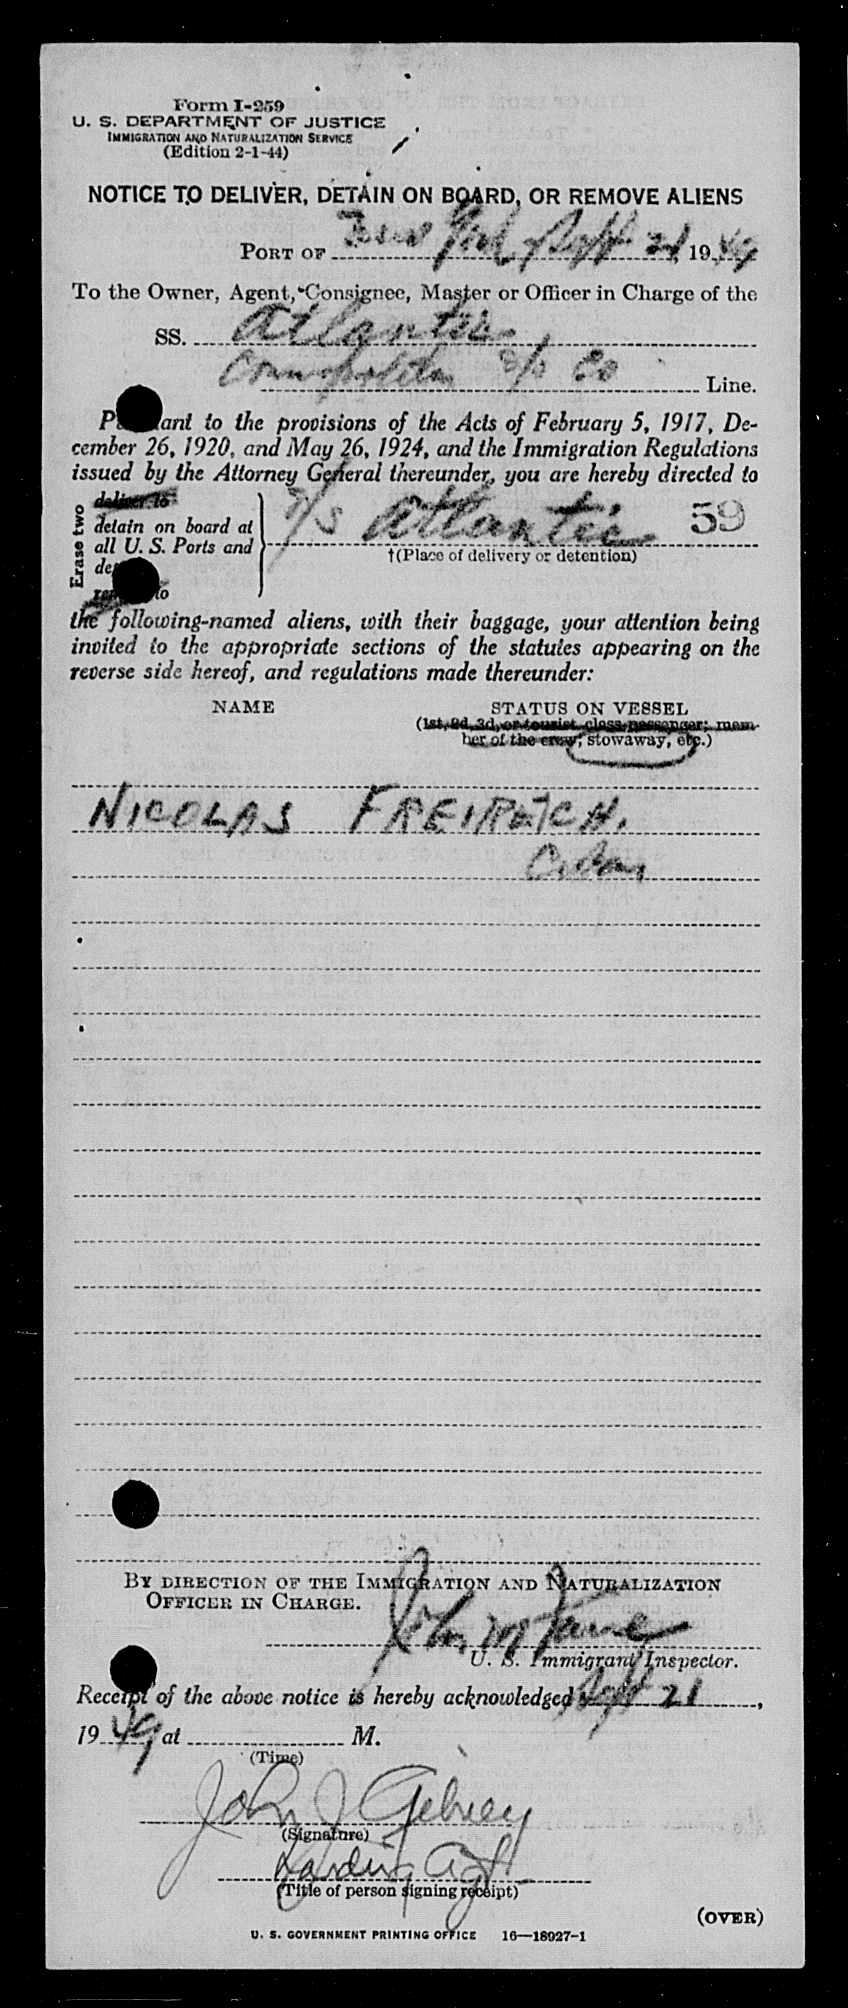 Form I-259
U. S. DEPARTMENT OF JUSTICE
IMMIGRATION AND NATURALIZATION SERVICE
(Edition 2-1-44)
NOTICE TO DELIVER, DETAIN ON BOARD, OR REMOVE ALIENS
PORT OF New York, Sept 21, 1949
To the Owner, Agent, Consignee, Master or Officer in Charge of the
SS. Atlantic
Cosmopolitan S/S Co Line.
Pursuant to the provisions of the Acts of February 5, 1917, De-
cember 26, 1920, and May 26, 1924, and the Immigration Regulations
issued by the Attorney General thereunder, you are hereby directed to
Erase two
deliver to
detain on board at
all U. S. Ports and
to
S/S Atlantic 59
†(Place of delivery or detention)
the following-named aliens, with their baggage, your attention being
invited to the appropriate sections of the statutes appearing on the
reverse side hereof, and regulations made thereunder:
NAME STATUS ON VESSEL
(1st, 2d, 3d, or tourist class passenger; mem-
ber of the crew; stowaway, etc.)
NICOLAS FREIRETCH.
BY DIRECTION OF THE IMMIGRATION AND NATURALIZATION
OFFICER IN CHARGE.
John
U. S. Immigrant Inspector.
Receipt of the above notice is hereby acknowledged Sept 21,
1949 at M.
(Time)
John J Gibney
(Signature)
Landing Agt.
(Title of person signing receipt)
(OVER)
U. S. GOVERNMENT PRINTING OFFICE 16—18927-1